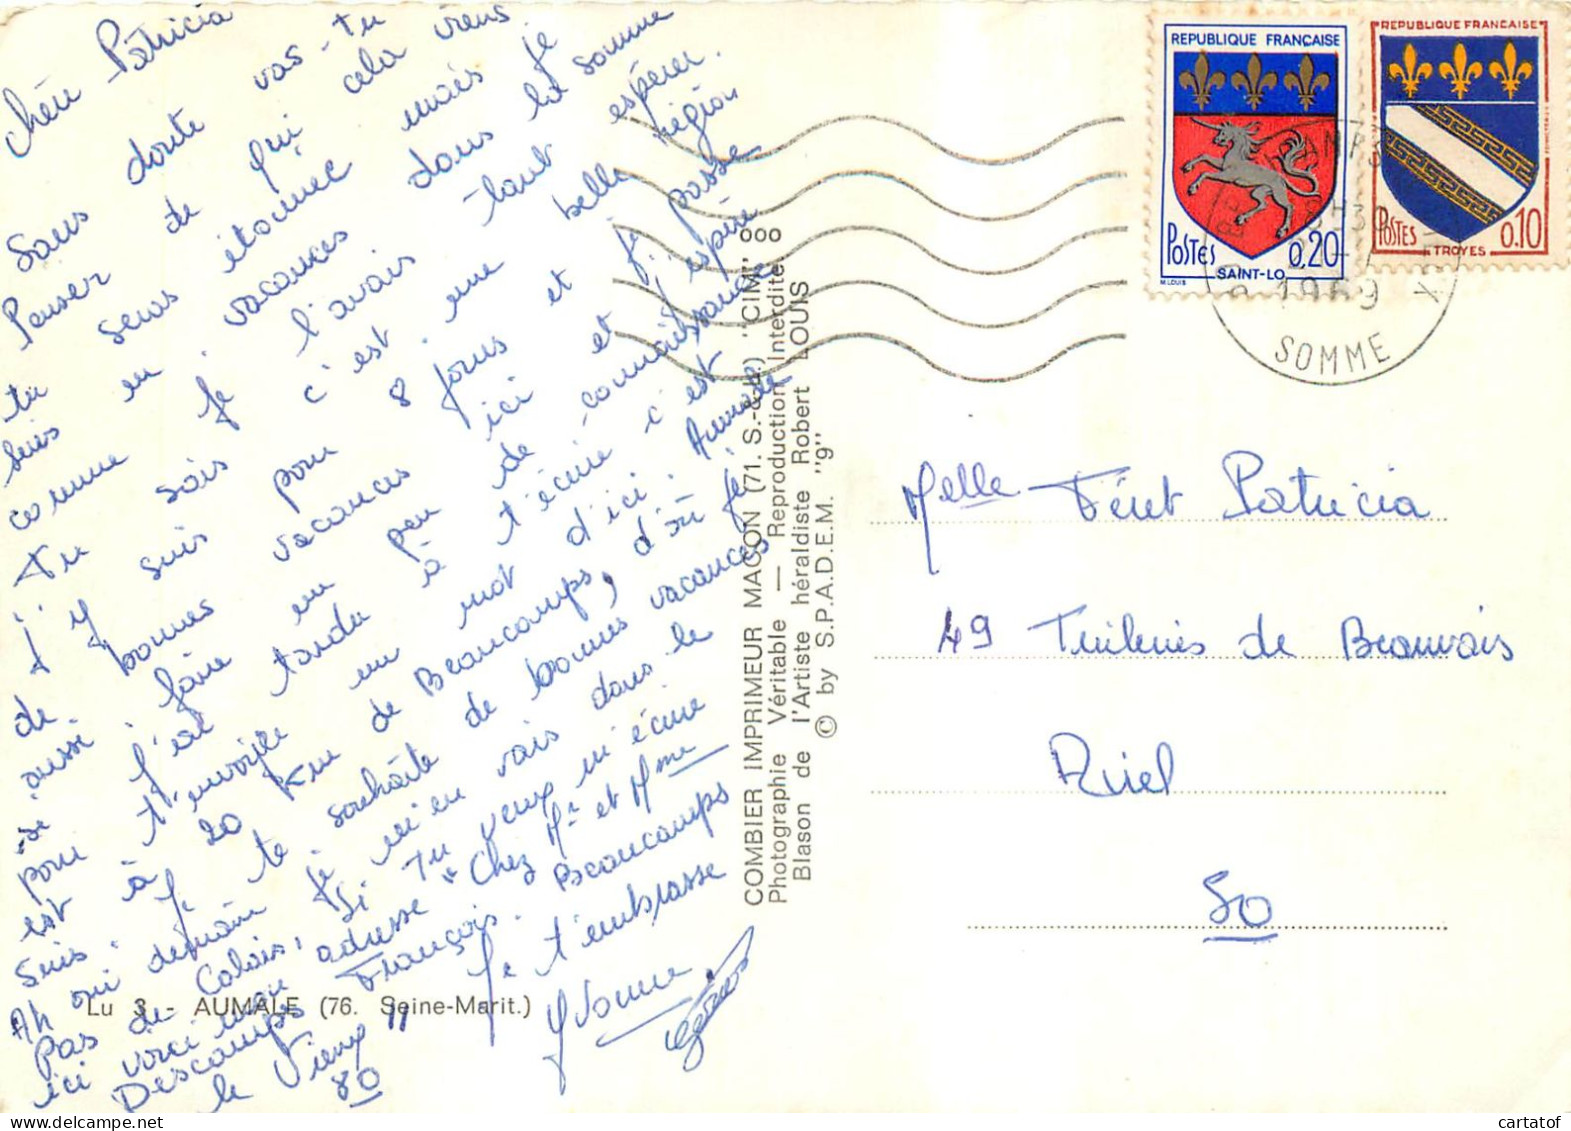 Chère Patricia
Sans doute vas-tu
Penser de qui cela viens
tu seras étonnée mais je
suis en vacances dans la somme
comme je l'avais tant espérer.
Tu sais c'est une belle région
j'y suis pour 8 jours et j'y passe
de bonnes vacances ici et j'espère
aussi faire un peu de connaissance
si j'ai tardé à t'écrire c'est
pour t'envoyée un mot d'ici. Aumale
est à 20 Km de Beaucamps, d'où je
suis. je te souhaite de bonnes vacances
Ah oui demain je m'en vais dans le
Pas de Calais, Si Tu veux m'écrire
ici voici mon adresse "Chez Mr et Mme
Descamps François. Beaucamps
le Vieux" Je t'embrasse
80
Yvonne
Lu 3 - AUMALE (76. Seine-Marit.)
COMBIER IMPRIMEUR MACON (71. S.-&-L.) "CIM" ooo
Photographie Véritable — Reproduction Interdite
Blason de l'Artiste héraldiste Robert LOUIS
© by S.P.A.D.E.M. "9"
REPUBLIQUE FRANÇAISE
POSTES 0,20
SAINT-LO
M.LOUIS
REPUBLIQUE FRANÇAISE
POSTES 0.10
TROYES
1969
SOMME
Melle Féret Patricia
49 Tuileries de Beauvais
Ruel
80
cartatof